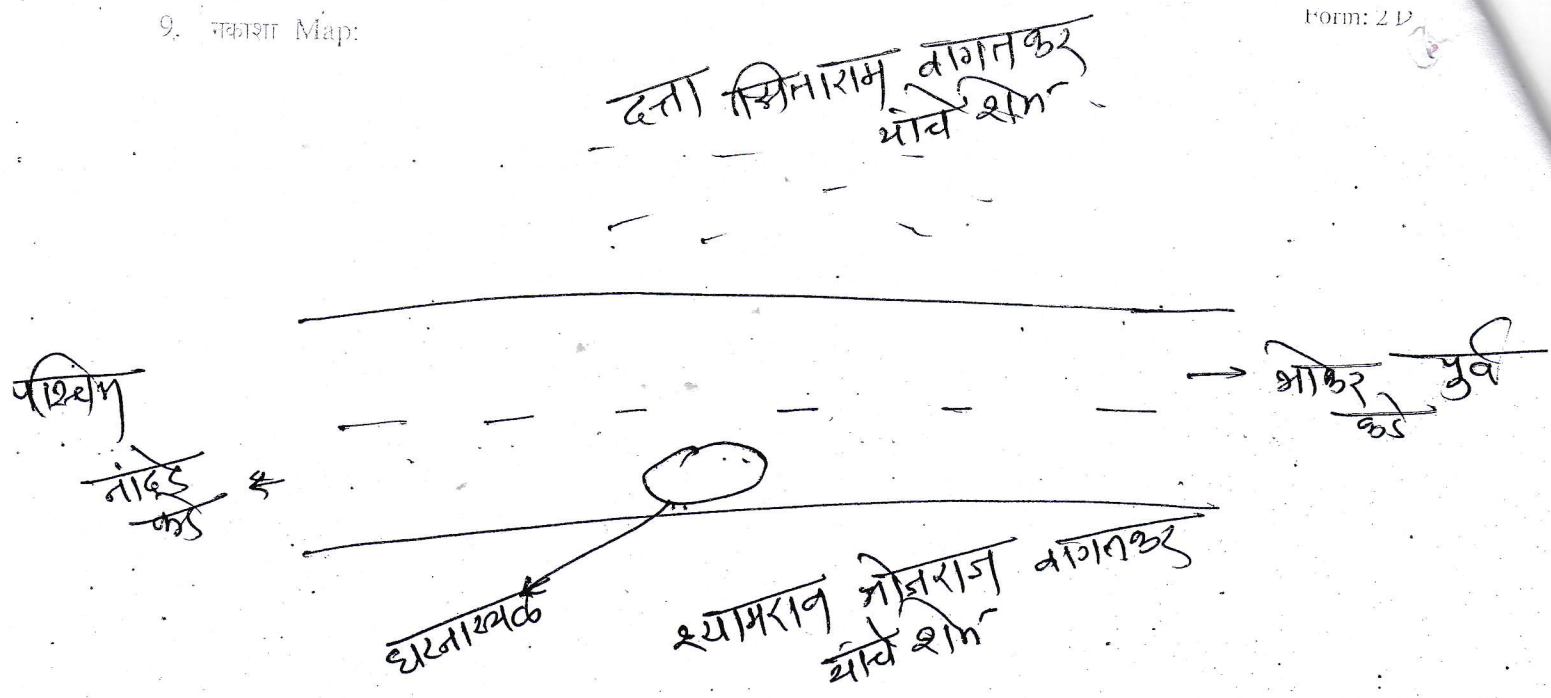 9. नकाशा Map:
Form: 2 D
दत्ता सिताराम वागतकर
यांचे शेत
पश्चिम
नांदेड
कडे
भोकर पुर्व
कडे
घटनास्थळ
श्यामराव भोजराज वागतकर
यांचे शेत